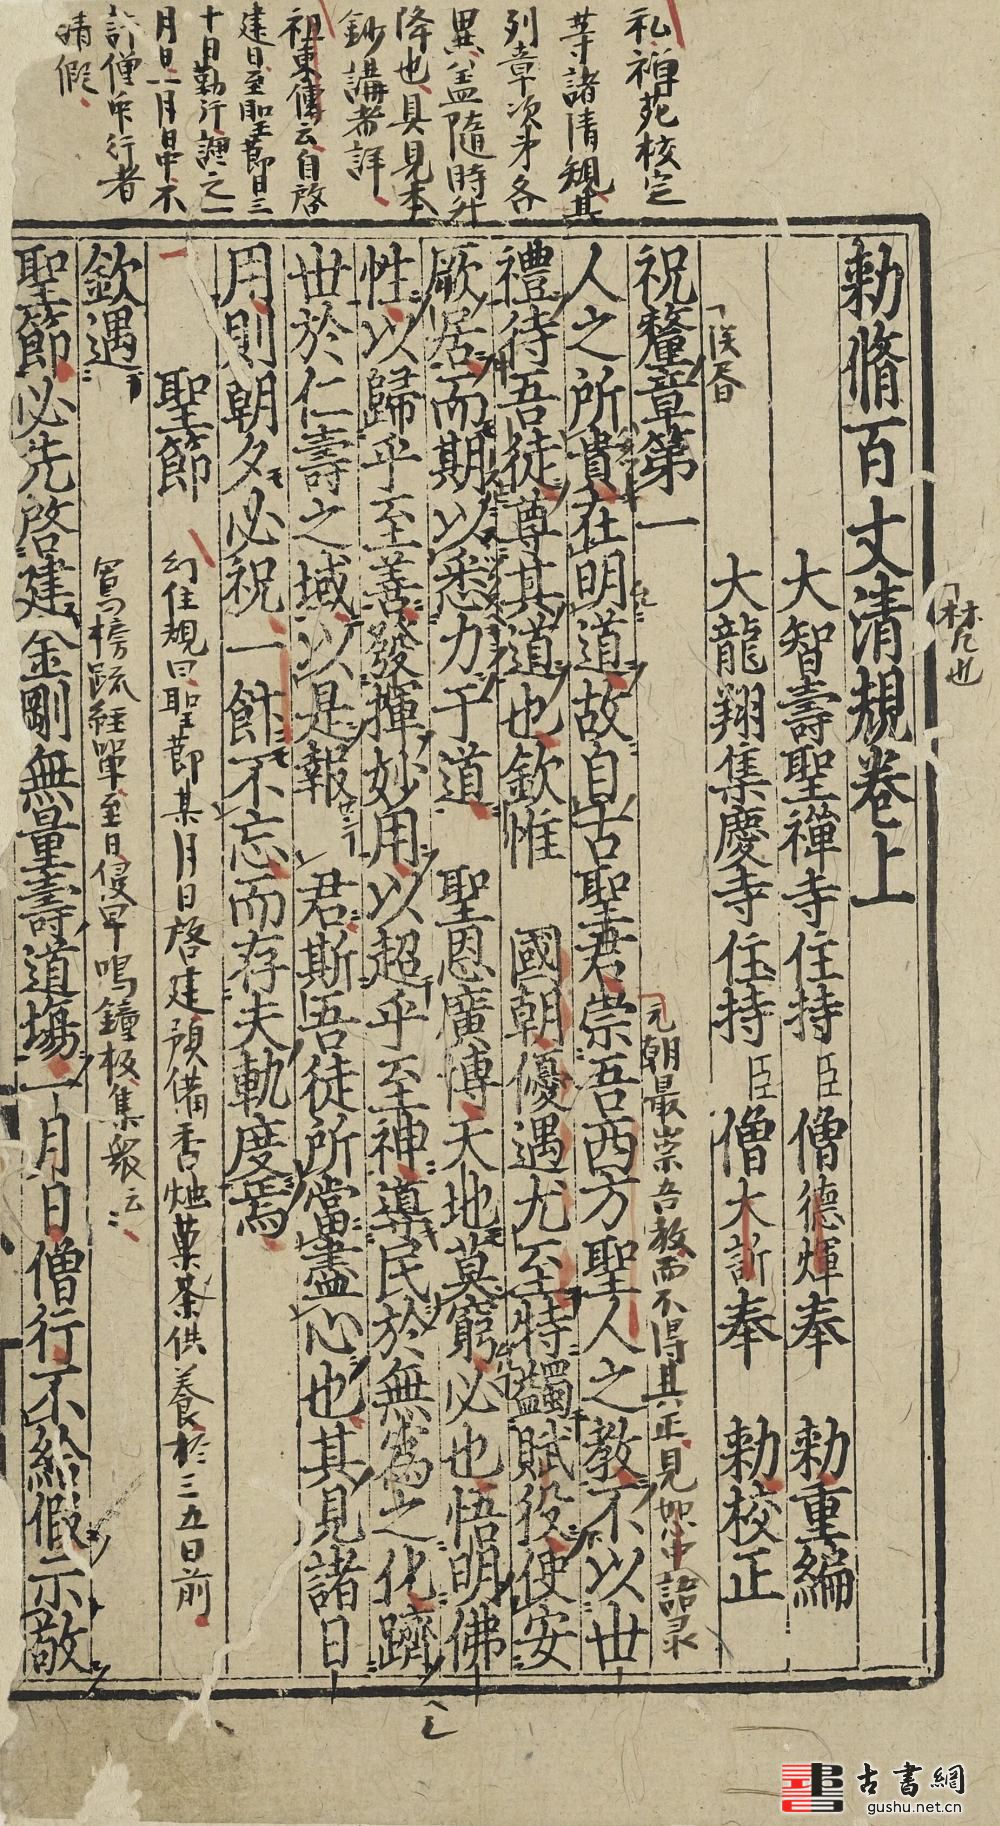 勅脩百丈清規卷上
大智壽聖禪寺住持臣僧德煇奉　勅重編
大龍翔集慶寺住持臣僧大訢奉　勅校正
祝釐章第一
人之所貴在明道故自古聖君崇吾西方聖人之教不以世
禮待吾徒尊其道也欽惟　國朝優遇尤至特蠲賦役使安
厥居而期以悉力于道　聖恩廣博天地莫窮必也悟明佛
性以歸乎至善發揮妙用以超乎至神導民於無為之化躋
世於仁壽之域以是報　君斯吾徒所當盡心也其見諸日
用則朝夕必祝一飲不忘而存夫軌度焉
聖節
欽遇
聖節必先啓建金剛無量壽道場一月日僧行不給假示敬
礼禅苑校定
等諸清規其
列章次第各
異盖隨時升
降也具見本
鈔講者詳
祖東傳云自啓
建日至聖節日三
十日勤行謹之一
月日一月日中不
許僧中行者
請假
元朝最崇吾教而不得其正見恕中語录
幻住規曰聖節某月日啓建預備香燭菓茶供養於三五日前
寫榜疏經單至日侵早鳴鐘板集衆云
古書網
gushu.net.cn